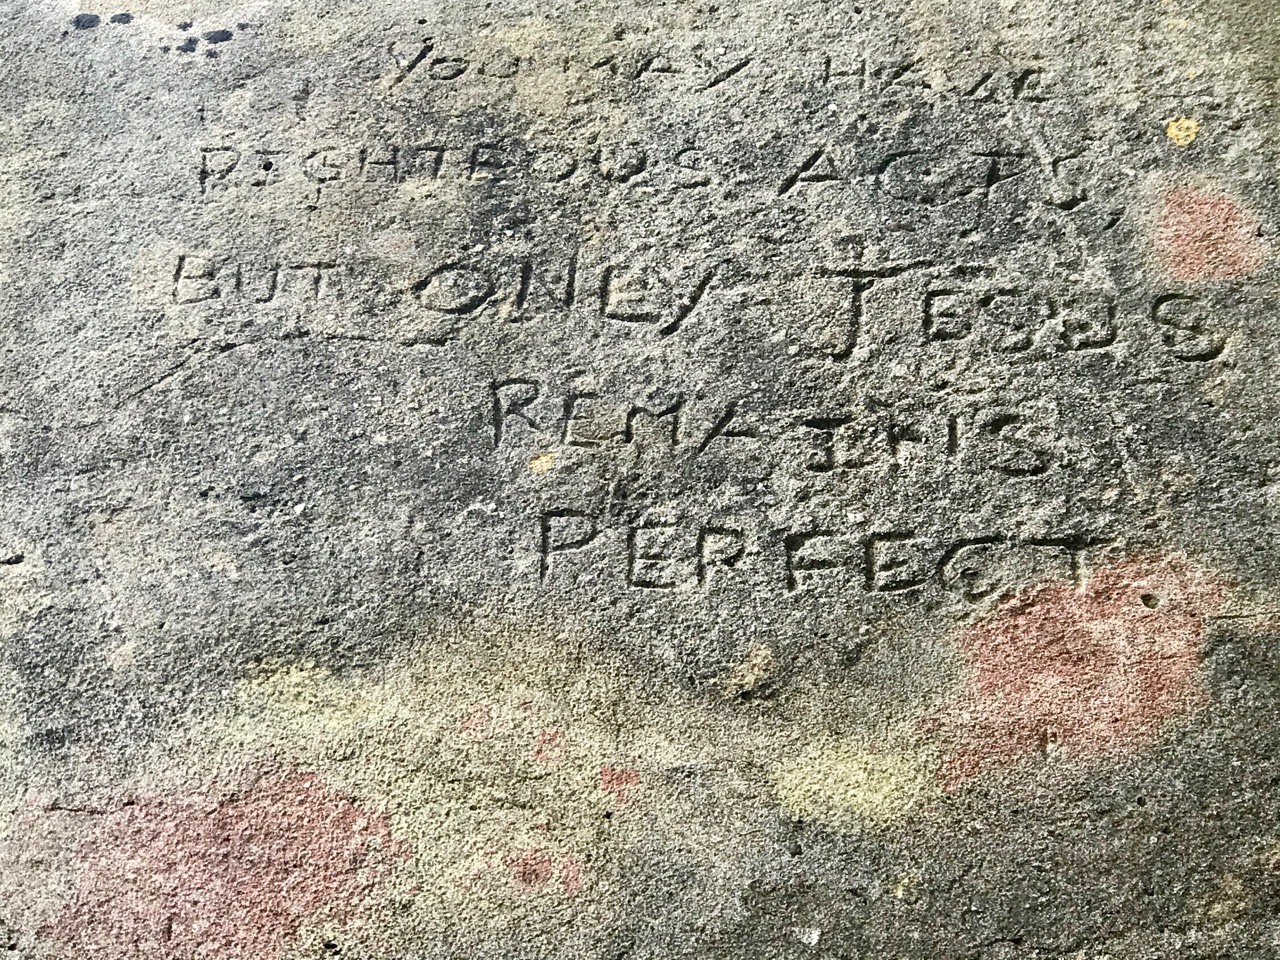 YOU MAY HAVE
RIGHTEOUS ACTS,
BUT ONLY JESUS
REMAINS
PERFECT